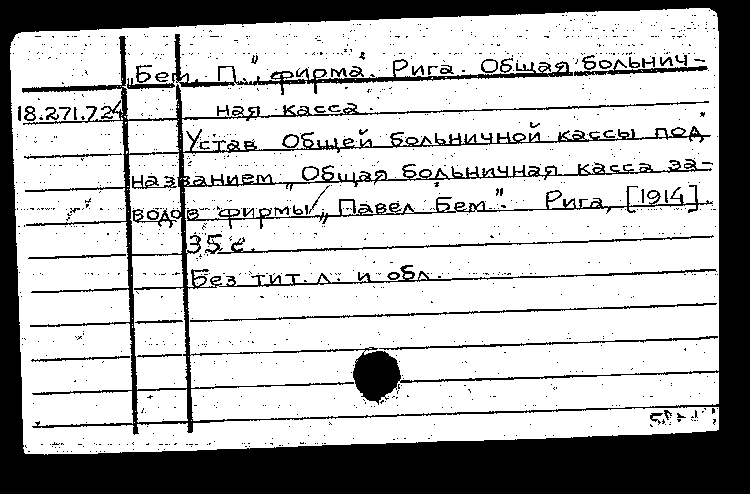 „Бем, П.", фирма. Рига. Общая больнич-
18.271.724 ная касса.
Устав Общей больничной кассы под
названием „Общая больничная касса за-
водов фирмы „Павел Бем". Рига, [1914].
35 с.
Без тит. л. и обл.